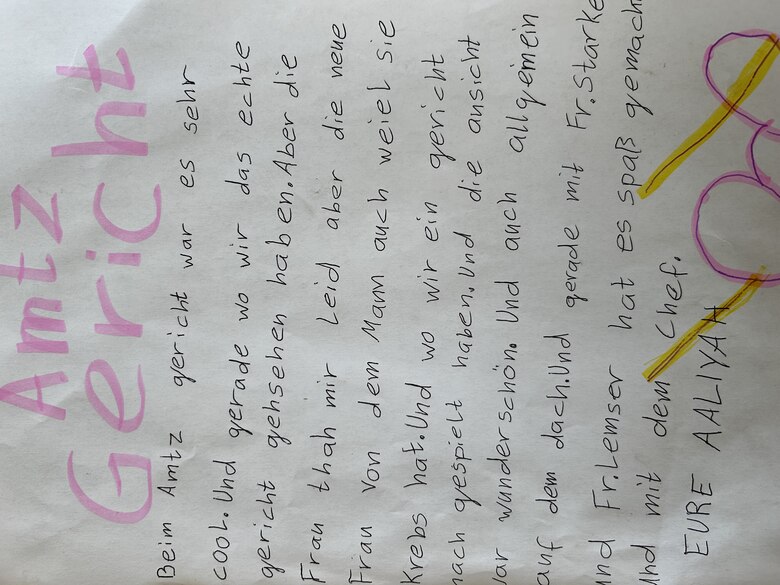 Amtz
Gericht
Beim Amtz gericht war es sehr
cool. Und gerade wo wir das echte
gericht gehsehen haben. Aber die
Frau thah mir Leid aber die neue
Frau von dem Mann auch weiel sie
Krebs hat. Und wo wir ein gericht
nach gespielt haben. Und die ansicht
war wunderschön. Und auch allgemein
auf dem dach. Und gerade mit Fr. Starke
und Fr. Lemser hat es spaß gemach
und mit dem Chef.
EURE AALIYAH